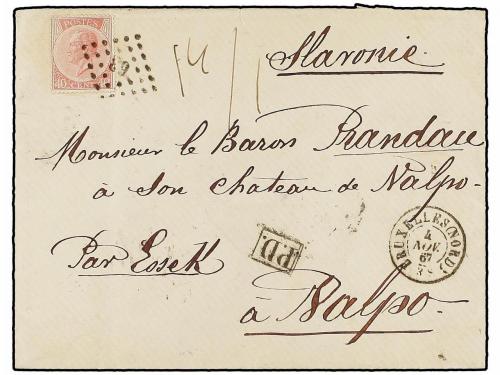 POSTES
Slavonie.
Monsieur le Baron Prandau
à son chateau de Valpo.
Par Essek
P.D.
BRUXELLES (NORD)
4
NOV.
67
à Valpo.